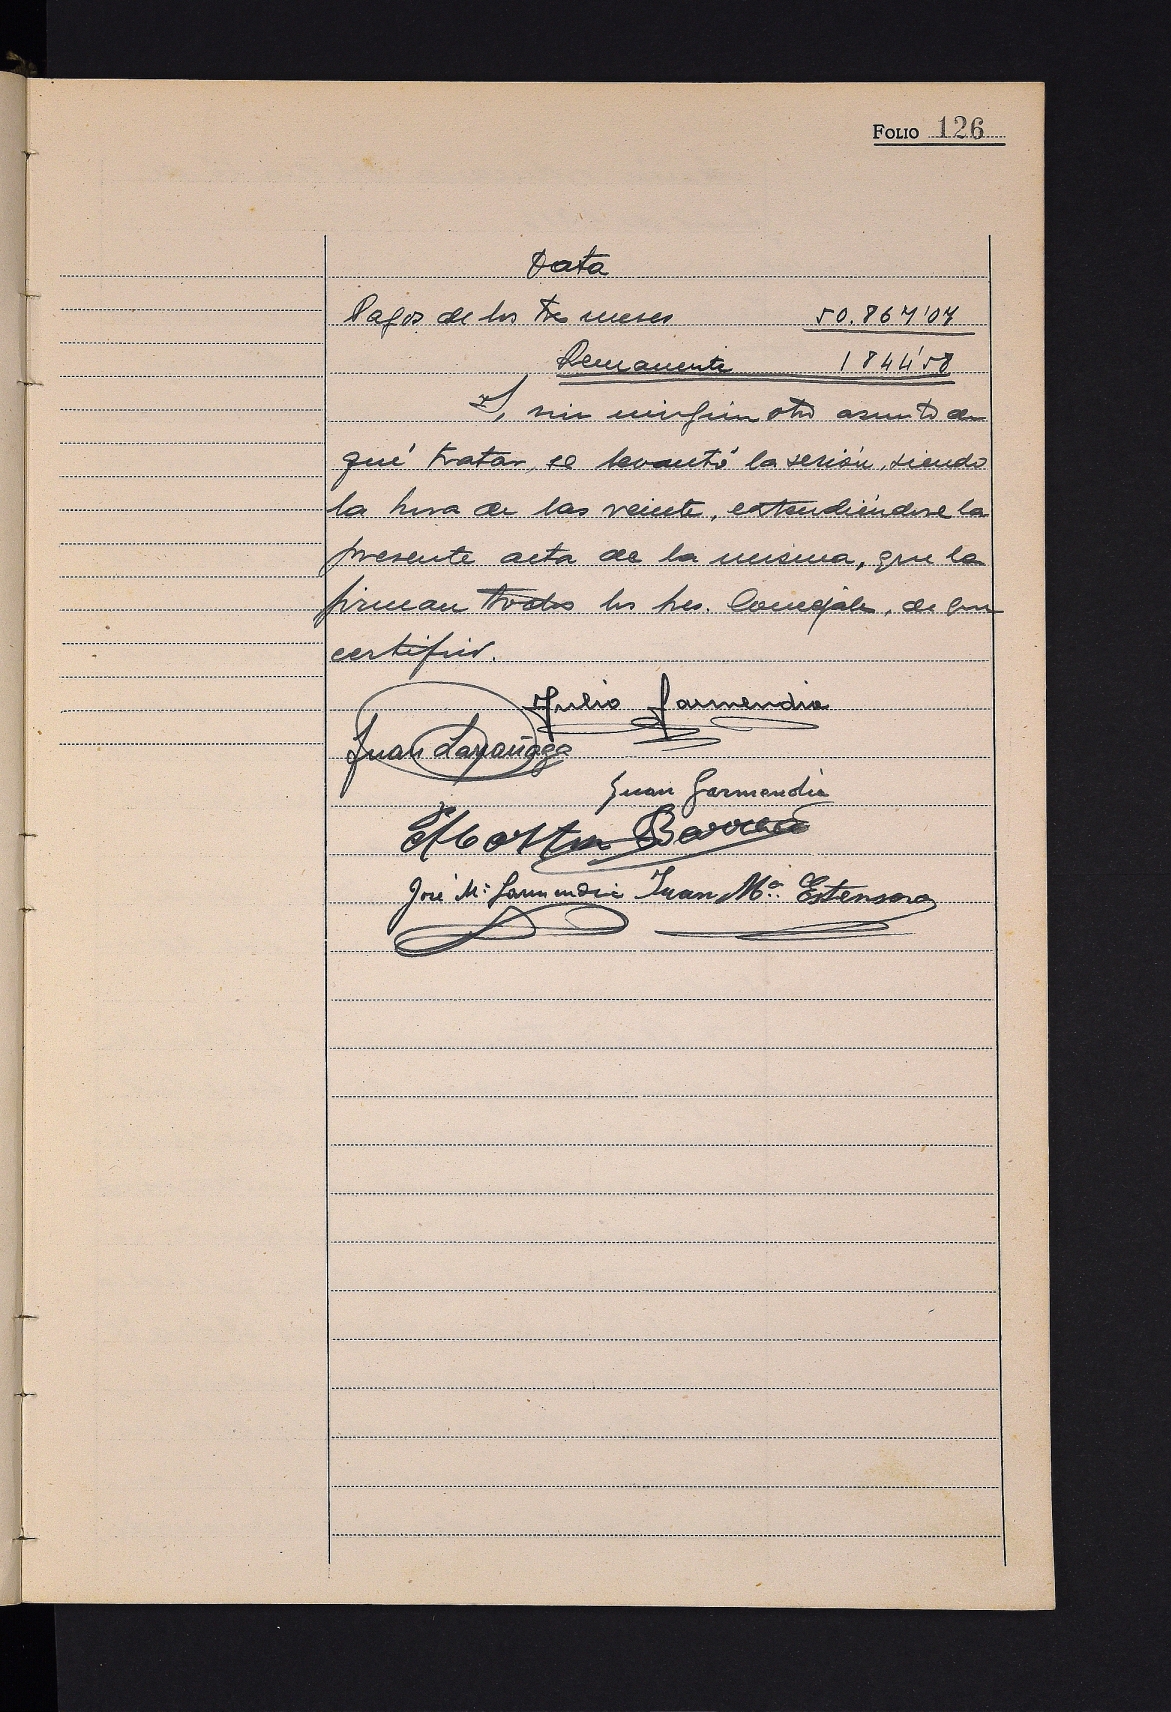 FOLIO 126
Data
Pagos de los tres meses 50.867'07
Remanente 1844'58
Y, sin ningún otro asunto de
qué tratar, se levantó la sesión, siendo
la hora de las veinte, extendiéndose la
presente acta de la misma, que la
firman todos los Sres. Concejales, de que
certifico.
Julio Garmendia
Juan Larrañaga
Juan Garmendia
José Mª Garmendia Juan Mª Estensoro